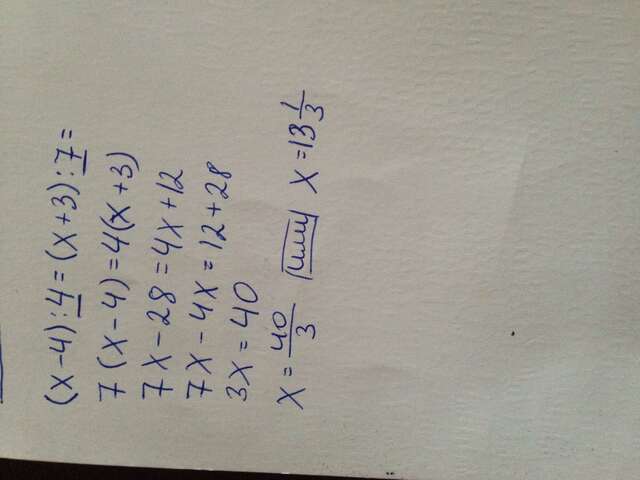 (x-4):4=(x+3):7=
7(x-4)=4(x+3)
7x-28=4x+12
7x-4x=12+28
3x=40
x=40/3 или x=13 1/3